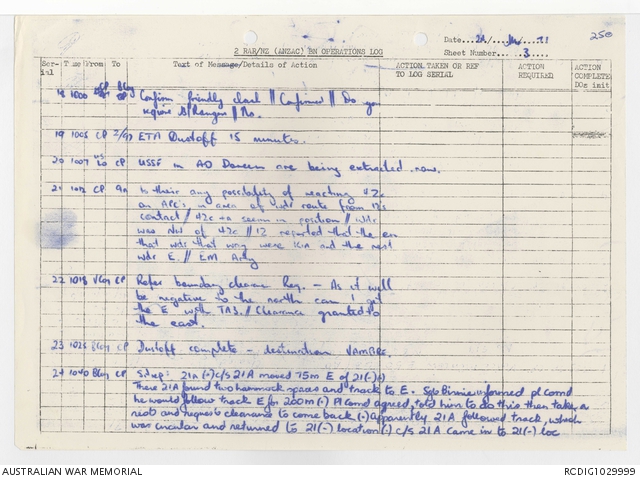 250
Date...21/...../71
2 RAR/NZ (ANZAC) BN OPERATIONS LOG
Sheet Number...3...
Ser- ial Time From To Text of Message/Details of Action ACTION TAKEN OR REF TO LOG SERIAL ACTION REQUIRED ACTION COMPLETE DOs init
18 1000 CP BCoy Confirm friendly clear // Confirmed // Do you
require // No.
19 1005 CP ETA Dustoff 15 minutes.
20 1007 LO CP USSF in AO are being extracted now.
21 1012 CP Is their any possibility of reaching 42c
on APC's in area of wdr route from 12's
contact // 42c in position // Wdr
was NW of 42c // 12 reported that the en
that wdr that way were KIA and the rest
wdr E. //
22 1018 VCoy CP Refer boundary clearance Req. - As it will
be negative to the north can I get
the E with TAS // Clearance granted to
the east.
23 1025 BCoy CP Dustoff complete - destination VAMPRE.
24 1040 BCoy CP Sitrep: 21A (-) c/s 21A moved 75m E of 21(-)
There 21A found two hammock spaces and track to E. Sgt Birnie informed pl Comd
he would follow track E for 200m (-) Pl Comd agreed, told him to do this then take a
rest and request clearance to come back (-) apparently 21A followed track, which
was circular and returned to 21(-) location (-) c/s 21A came in to 21(-) loc
AUSTRALIAN WAR MEMORIAL
RCDIG1029999